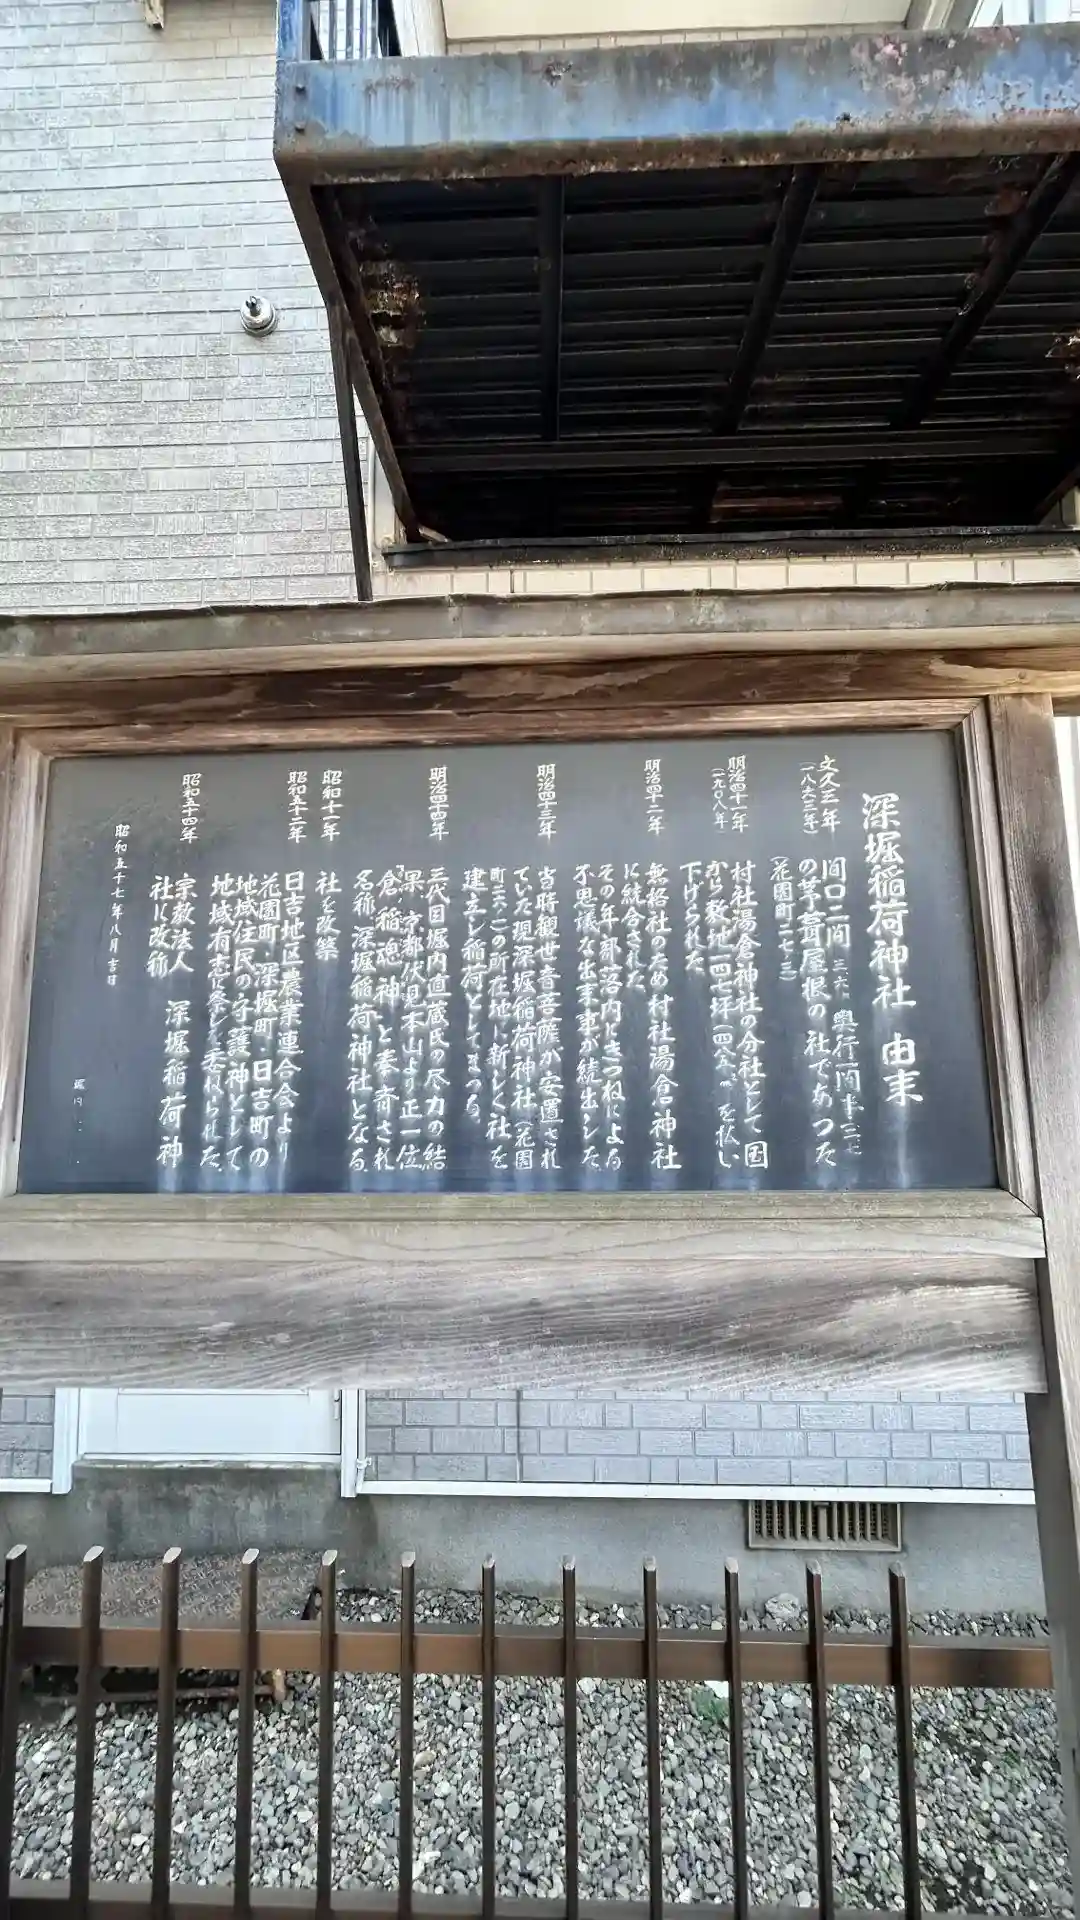 深堀稲荷神社 由来
文久三年
(一八六三年)
間口二間 三・六 奥行一間半 二・七
の茅葺屋根の社であつた
(花園町二七・三)
明治四十一年
(一九〇八年)
村社湯倉神社の分社として国
から敷地一四七坪を払い
下げられた
明治四十二年
無格社のため村社湯倉神社
に統合された
その年部落内にきつねによる
不思議な出来事が続出した
明治四十三年
当時観世音菩薩が安置され
ていた現深堀稲荷神社(花園
町二六・)の所在地に新しく社を
建立し稲荷としてまつる
明治四十四年
三代目堀内直蔵氏の尽力の結
果、京都伏見本山より正一位
倉稲魂神と奉斉され
名称深堀稲荷神社となる
昭和十一年
社を改築
昭和五十二年
日吉地区農業連合会より
花園町・深堀町・日吉町の
地域住民の守護神として
地域有志に祭りを委ねられた
昭和五十四年
宗教法人 深堀稲荷神
社に改称
昭和五十七年八月吉日
堀内